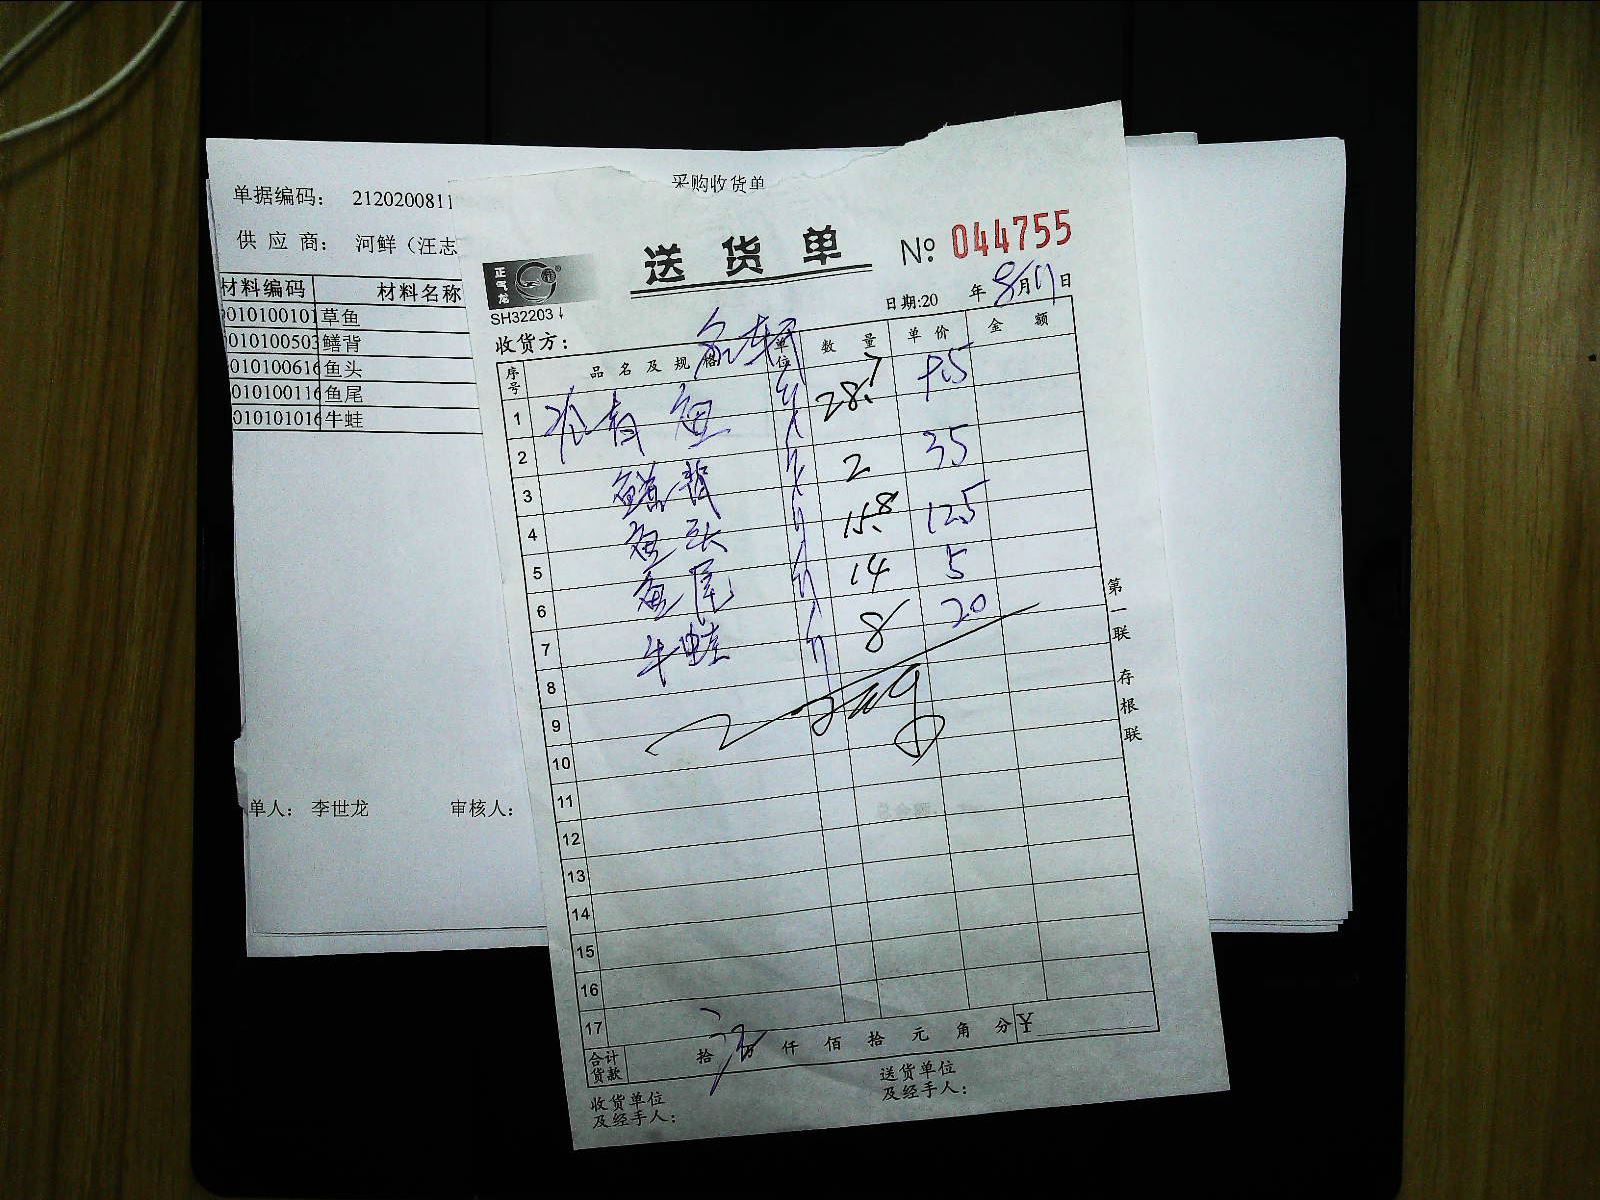 采购收货单
单据编码： 2120200811
供 应 商： 河鲜（汪志
材料编码 材料名称
010100101 草鱼
010100503 鳝背
010100616 鱼头
010100116 鱼尾
010101016 牛蛙
单人： 李世龙 审核人：
送货单 № 044755
正气龙
SH32203
日期:20 年 8月11日
收货方：
序号 品名及规格 单位 数量 单价 金额
1 鱼 斤 28.7 9.5
2
3 鳝背 斤 2 35
4 鱼头 斤 15.8 12.5
5 鱼尾 斤 14 5
6
7 牛蛙 斤 8 20
8
9
10
11
12
13
14
15
16
17
合计货款 拾 万 仟 佰 拾 元 角 分 ¥
收货单位及经手人：
送货单位及经手人：
第一联 存根联